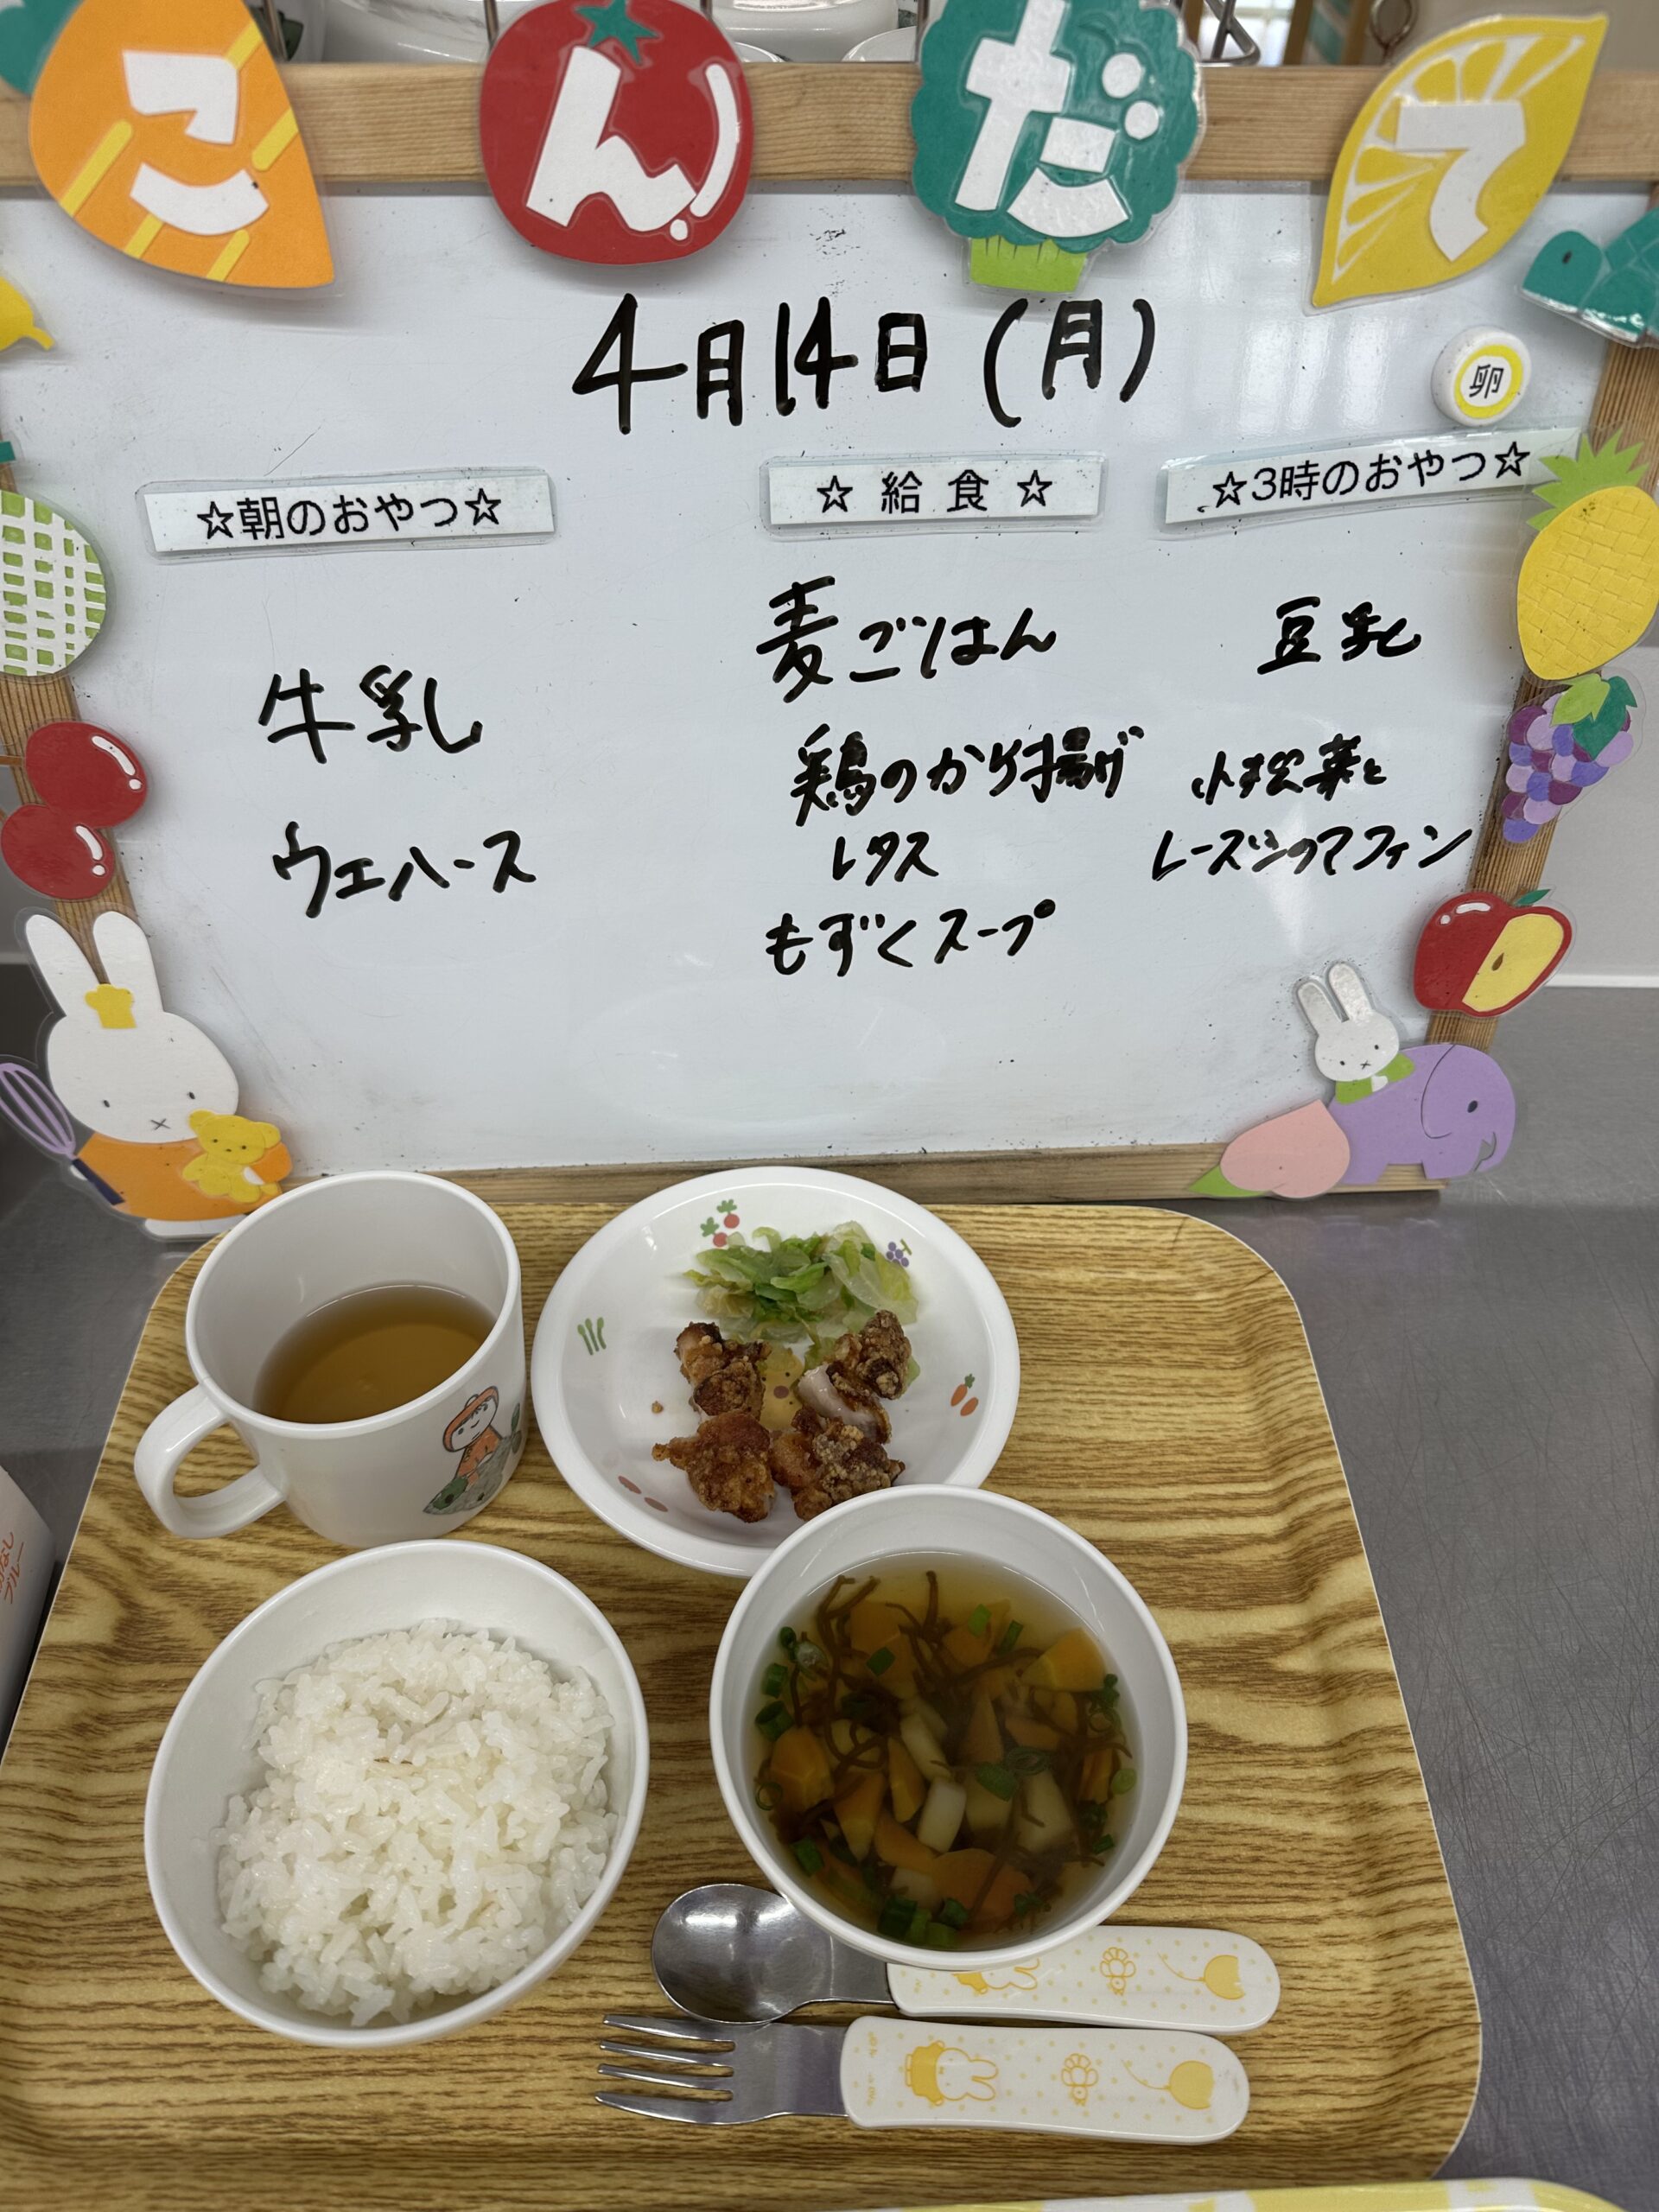 こんだて
4月14日(月)
卵
☆朝のおやつ☆
☆給食☆
☆3時のおやつ☆
牛乳
ウエハース
麦ごはん
鶏のから揚げ
レタス
もずくスープ
豆乳
小松菜と
レーズンのマフィン